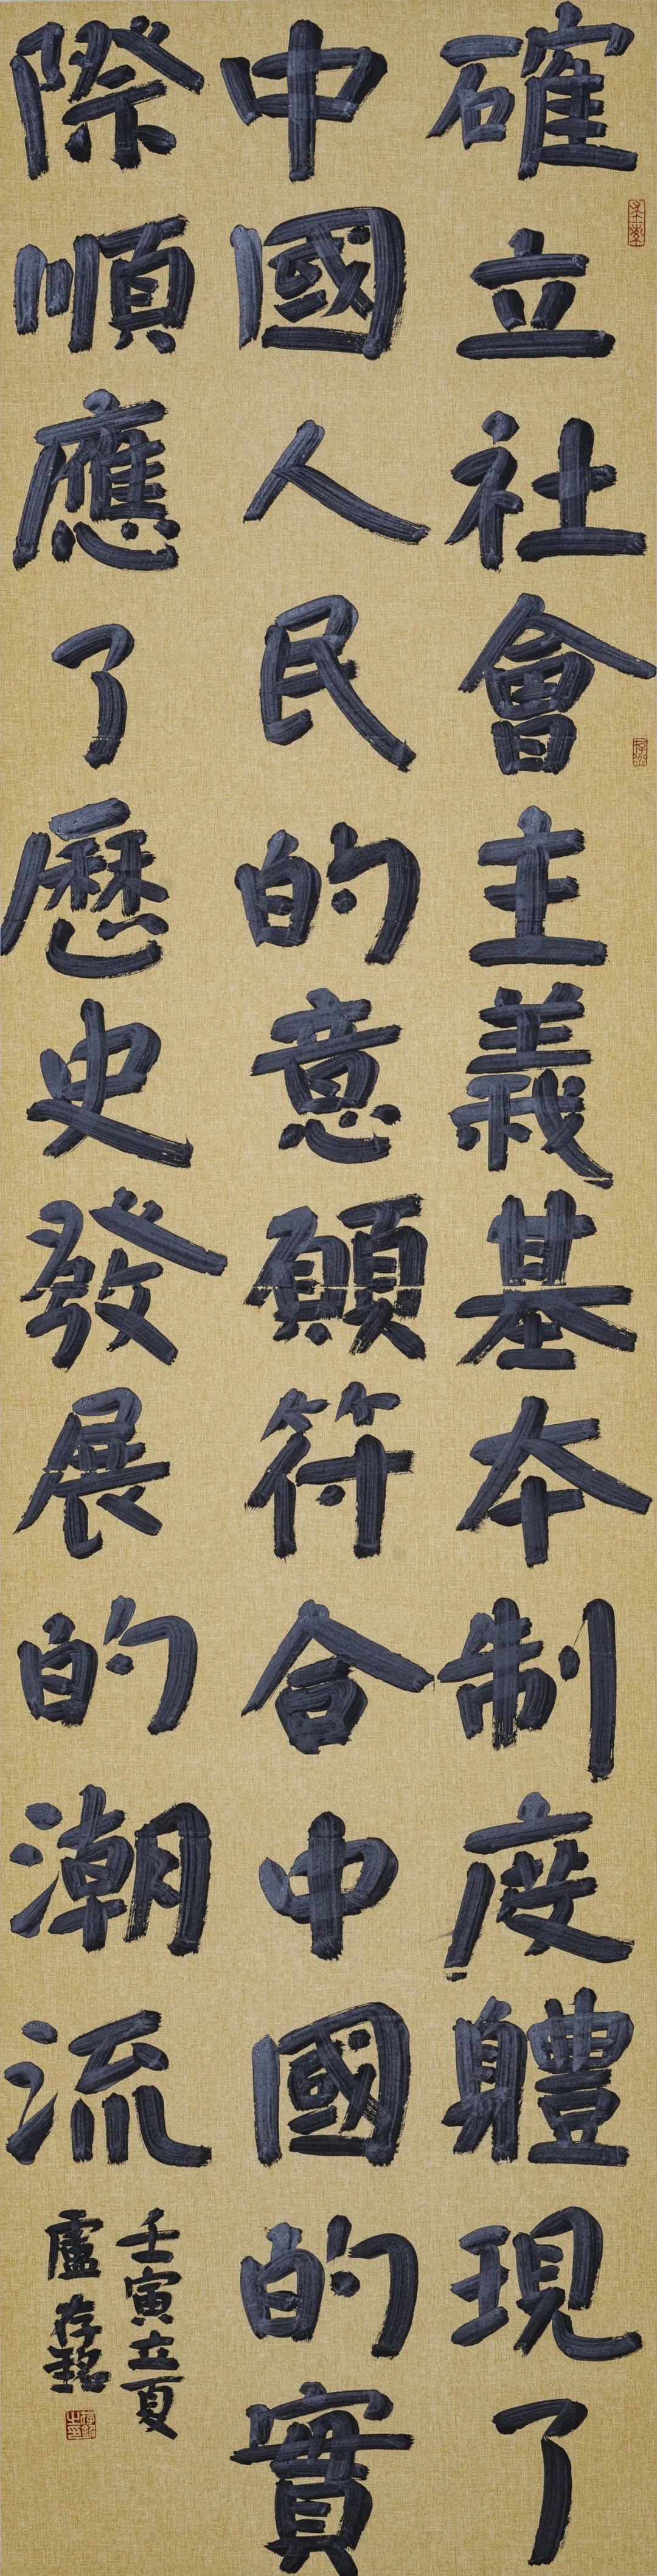 確立社會主義基本制度軆現了
中國人民的意願符合中國的實
際順應了歷史發展的潮流
壬寅立夏
盧存